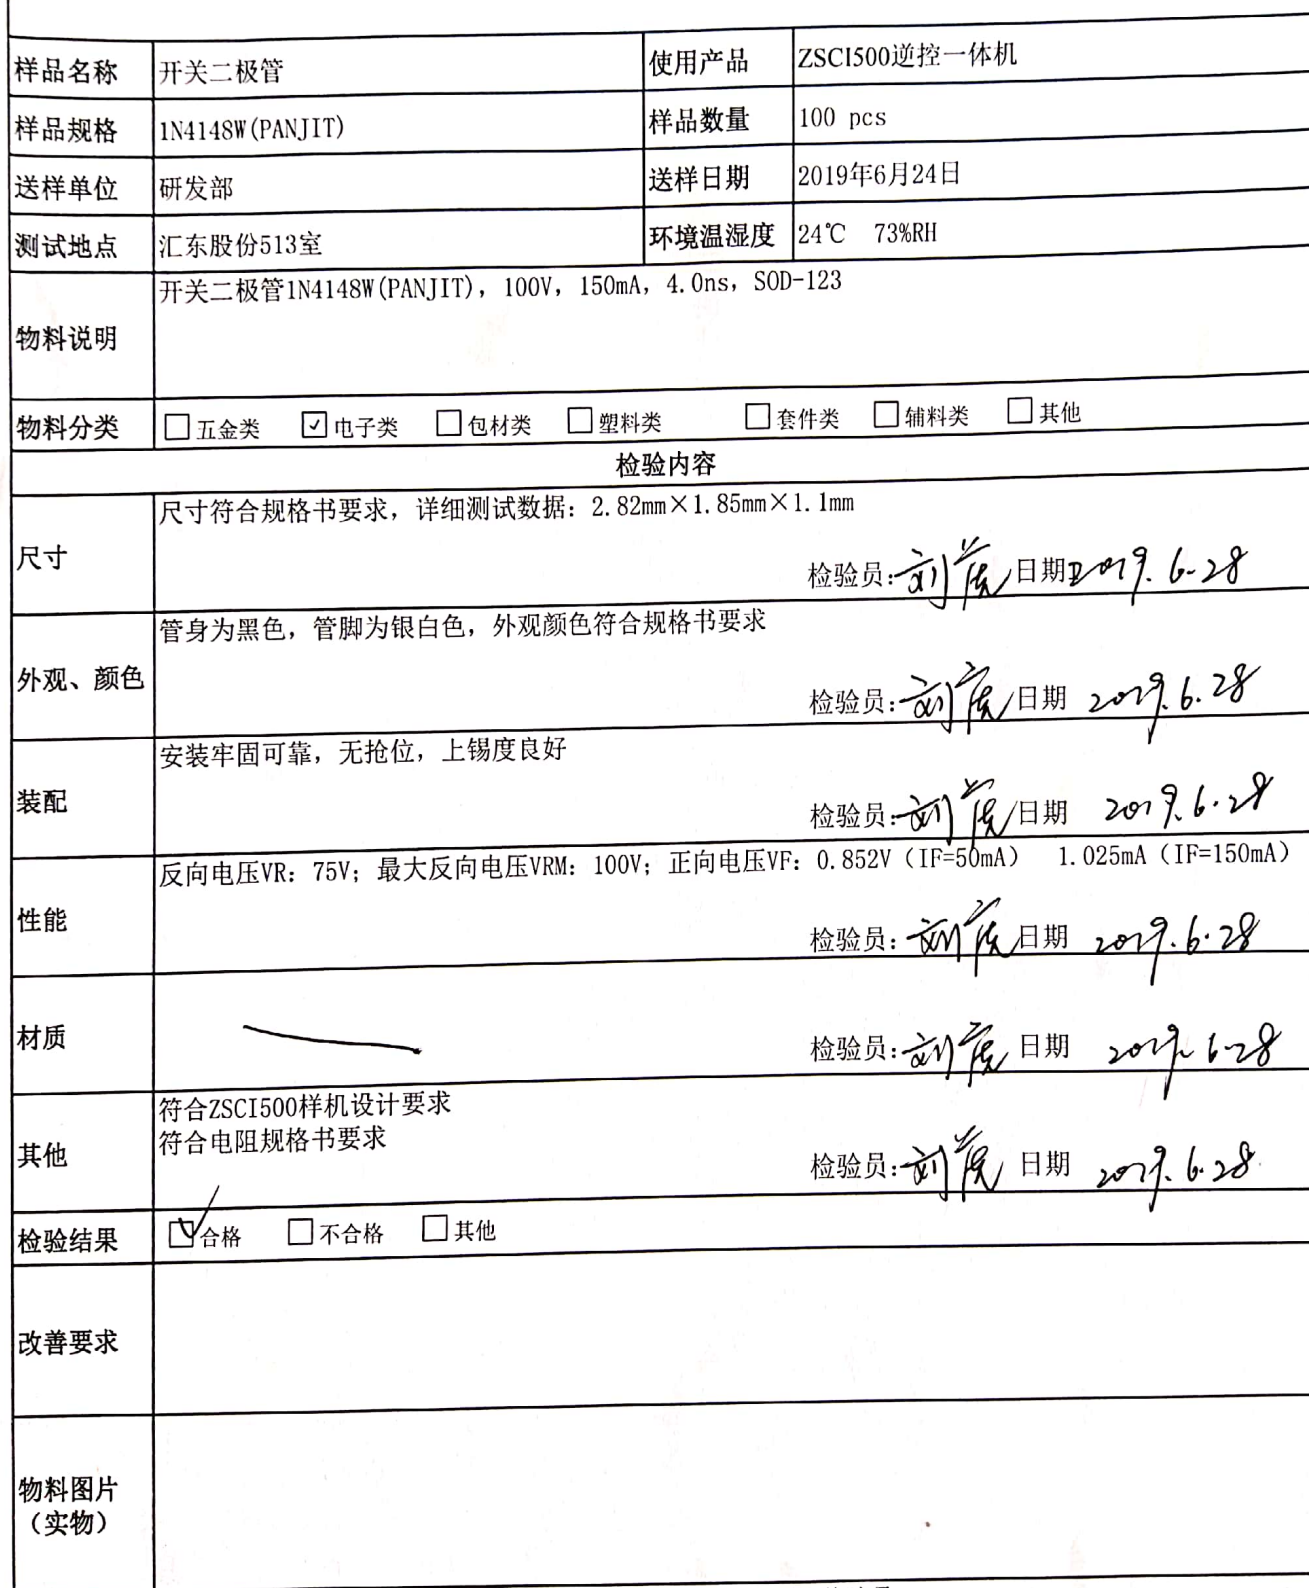 样品名称 开关二极管 使用产品 ZSCI500逆控一体机
样品规格 1N4148W(PANJIT) 样品数量 100 pcs
送样单位 研发部 送样日期 2019年6月24日
测试地点 汇东股份513室 环境温湿度 24℃ 73%RH
物料说明 开关二极管1N4148W(PANJIT), 100V, 150mA, 4.0ns, SOD-123
物料分类 五金类 ✓电子类 包材类 塑料类 套件类 辅料类 其他
检验内容
尺寸 尺寸符合规格书要求，详细测试数据：2.82mm×1.85mm×1.1mm
检验员: 日期 2019.6.28
外观、颜色 管身为黑色，管脚为银白色，外观颜色符合规格书要求
检验员: 日期 2019.6.28
装配 安装牢固可靠，无抢位，上锡度良好
检验员: 日期 2019.6.28
性能 反向电压VR：75V；最大反向电压VRM：100V；正向电压VF：0.852V（IF=50mA） 1.025mA（IF=150mA）
检验员: 日期 2019.6.28
材质
检验员: 日期 2019.6-28
其他 符合ZSCI500样机设计要求
符合电阻规格书要求
检验员: 日期 2019.6.28
检验结果 ✓合格 不合格 其他
改善要求
物料图片
（实物）